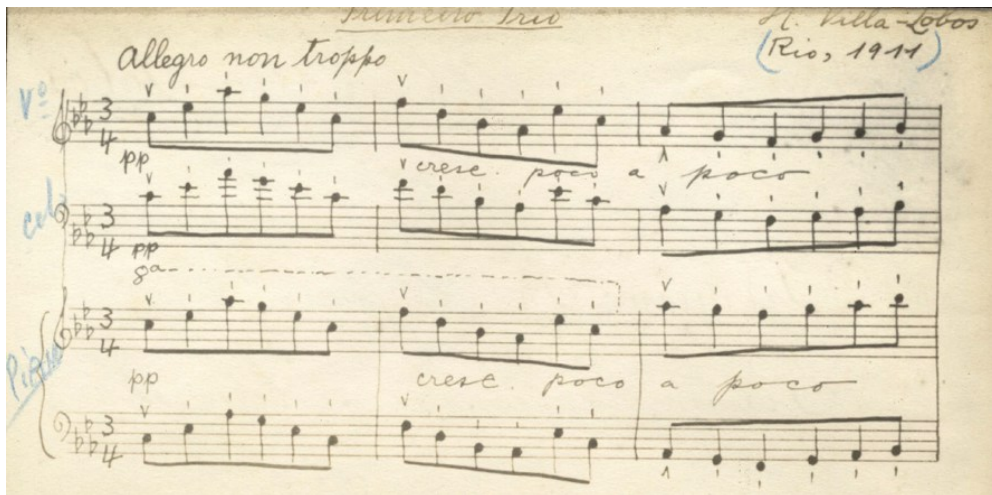 Primeiro Trio
H. Villa-Lobos
(Rio, 1911)
Allegro non troppo
Vº
3
4
pp
cresc. poco a poco
cel
3
4
pp
8a
Piano
3
4
pp
cresc. poco a poco
3
4